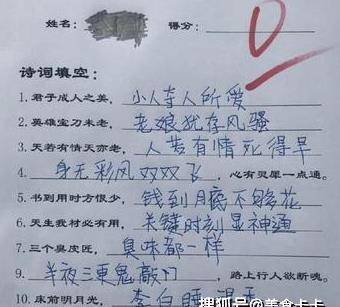 姓名： 得分： 0
诗词填空：
1. 君子成人之美，小人夺人所爱
2. 英雄宝刀未老，老娘犹存风骚
3. 天若有情天亦老，人若有情死得早
4. 身无彩凤双双飞，心有灵犀一点通。
5. 书到用时方恨少，钱到月底不够花
6. 天生我材必有用，关键时刻显神通
7. 三个臭皮匠，臭味都一样
9. 半夜三更鬼敲门，路上行人欲断魂。
10. 床前明月光，李白睡
搜狐号@美食卡卡